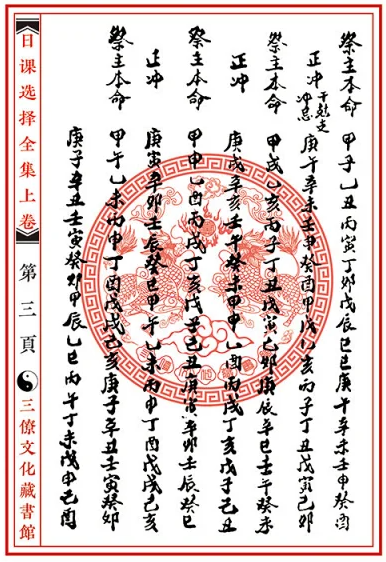 祭主本命 甲子乙丑丙寅丁卯戊辰己巳庚午辛未壬申癸酉
正冲 庚午辛未壬申癸酉甲戌乙亥丙子丁丑戊寅己卯
祭主本命 甲戌乙亥丙子丁丑戊寅己卯庚辰辛巳壬午癸未
正冲 庚戌辛亥壬午癸未甲申乙酉丙戌丁亥戊子己丑
祭主本命 甲申乙酉丙戌丁亥戊子己丑庚寅辛卯壬辰癸巳
正冲 庚寅辛卯壬辰癸巳甲午乙未丙申丁酉戊戌己亥
祭主本命 甲午乙未丙申丁酉戊戌己亥庚子辛丑壬寅癸卯
庚子辛丑壬寅癸卯甲辰乙巳丙午丁未戊申己酉
日课选择全集上卷 第三頁 三僚文化藏書館